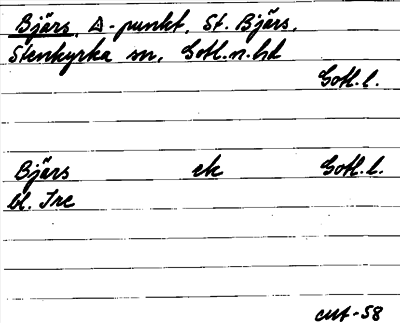 Bjärs, △-punkt, St. Bjärs,
Stenkyrka sn, Gotl.n.hd
Gotl.l.
Bjärs ek Gotl.l.
bl. Tre
cut-58